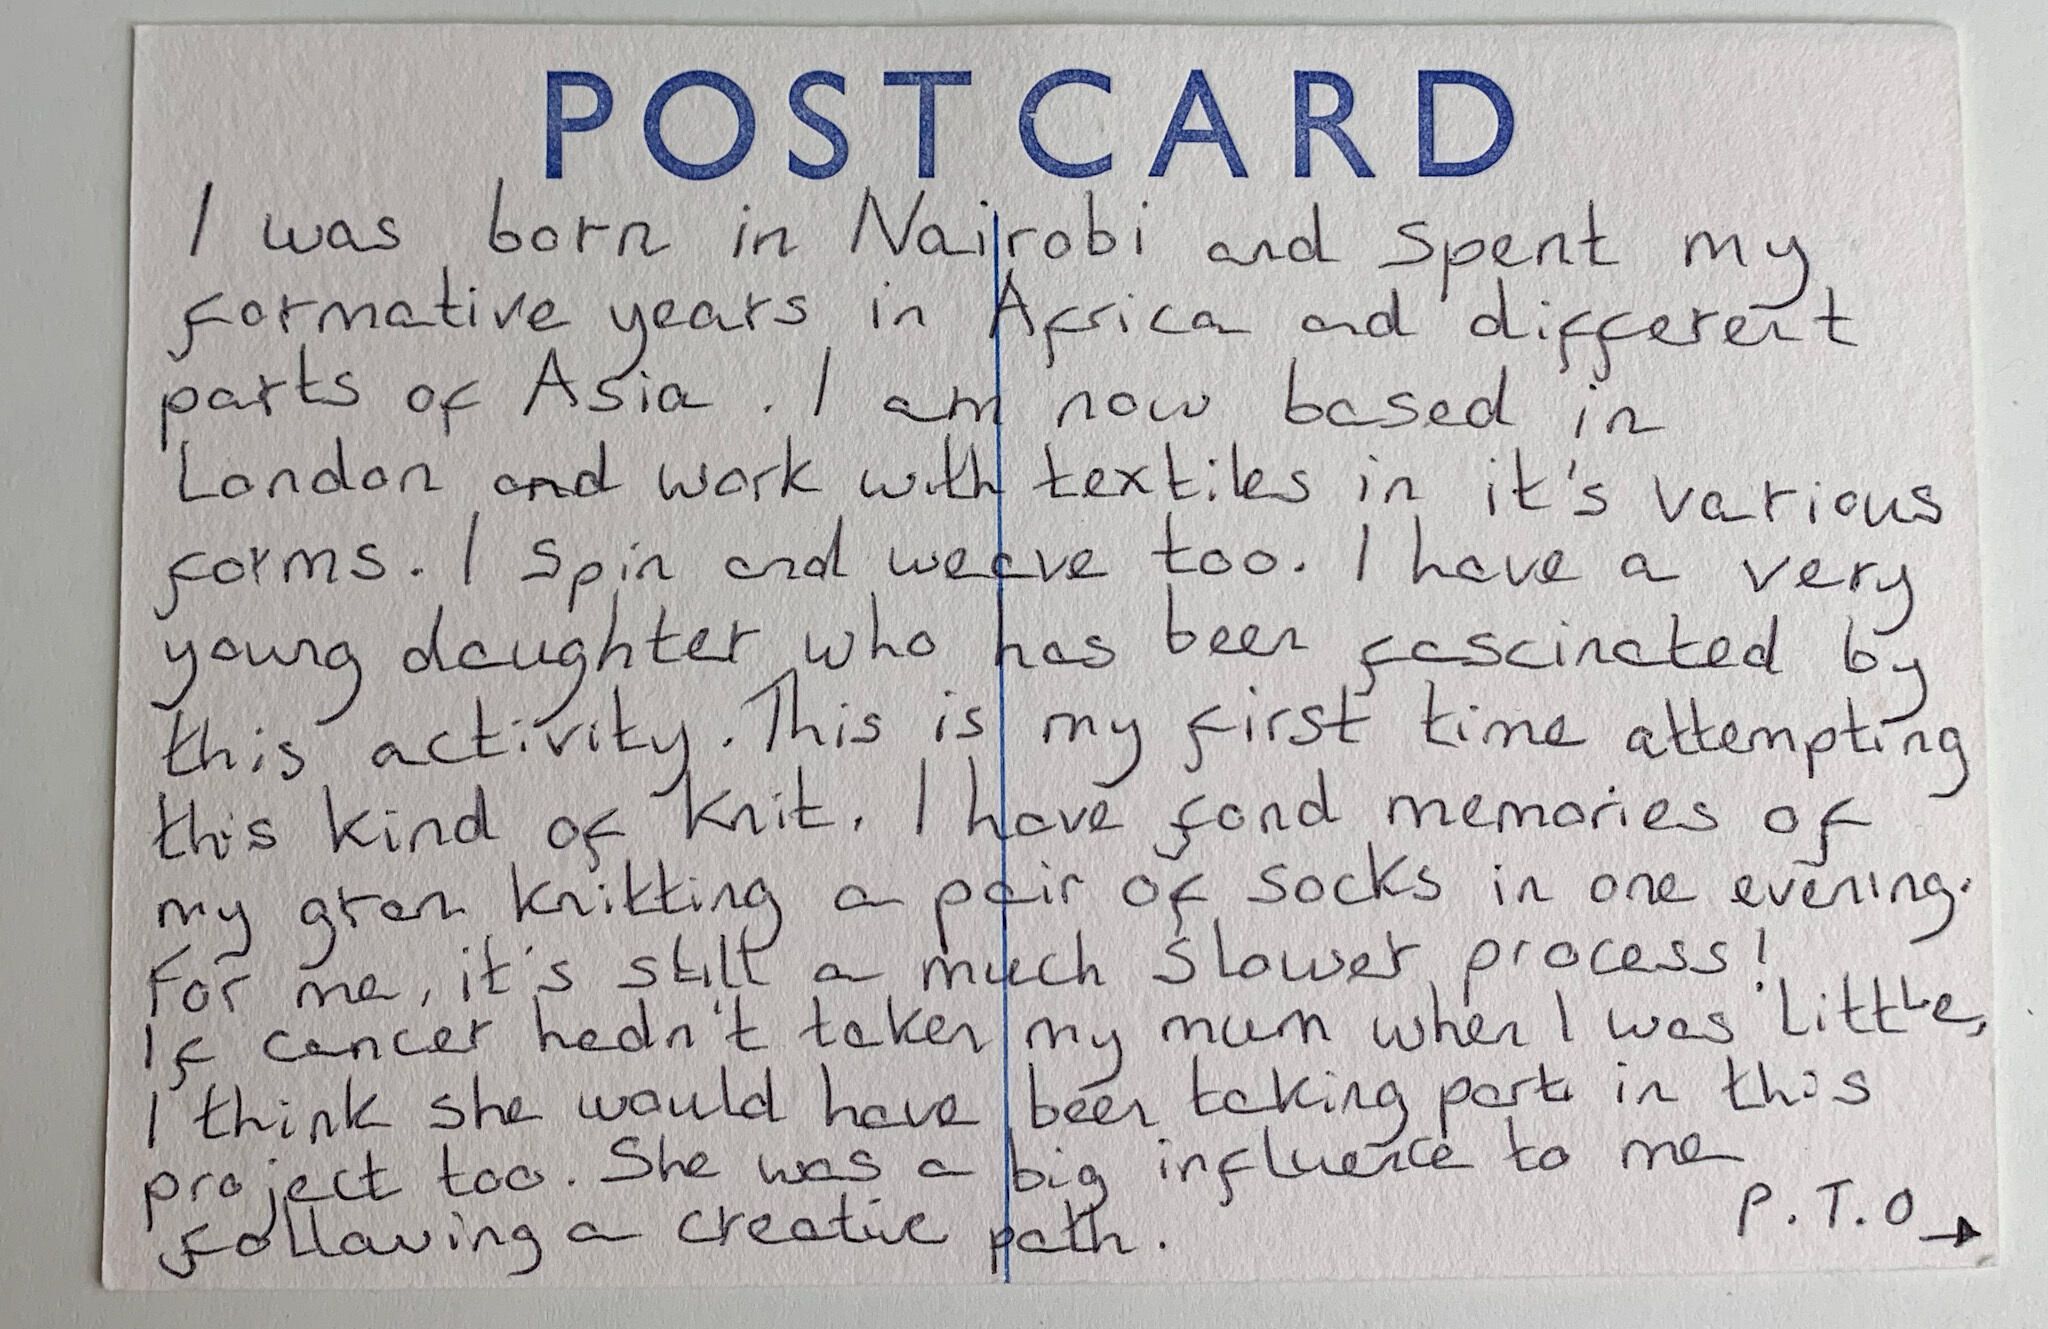 POSTCARD
I was born in Nairobi and spent my
formative years in Africa and different
parts of Asia. I am now based in
London and work with textiles in it's various
forms. I spin and weave too. I have a very
young daughter who has been fascinated by
this activity. This is my first time attempting
this kind of knit. I have fond memories of
my gran knitting a pair of socks in one evening.
For me, it's still a much slower process!
If cancer hadn't taken my mum when I was little,
I think she would have been taking part in this
project too. She was a big influence to me
following a creative path.
P.T.O →